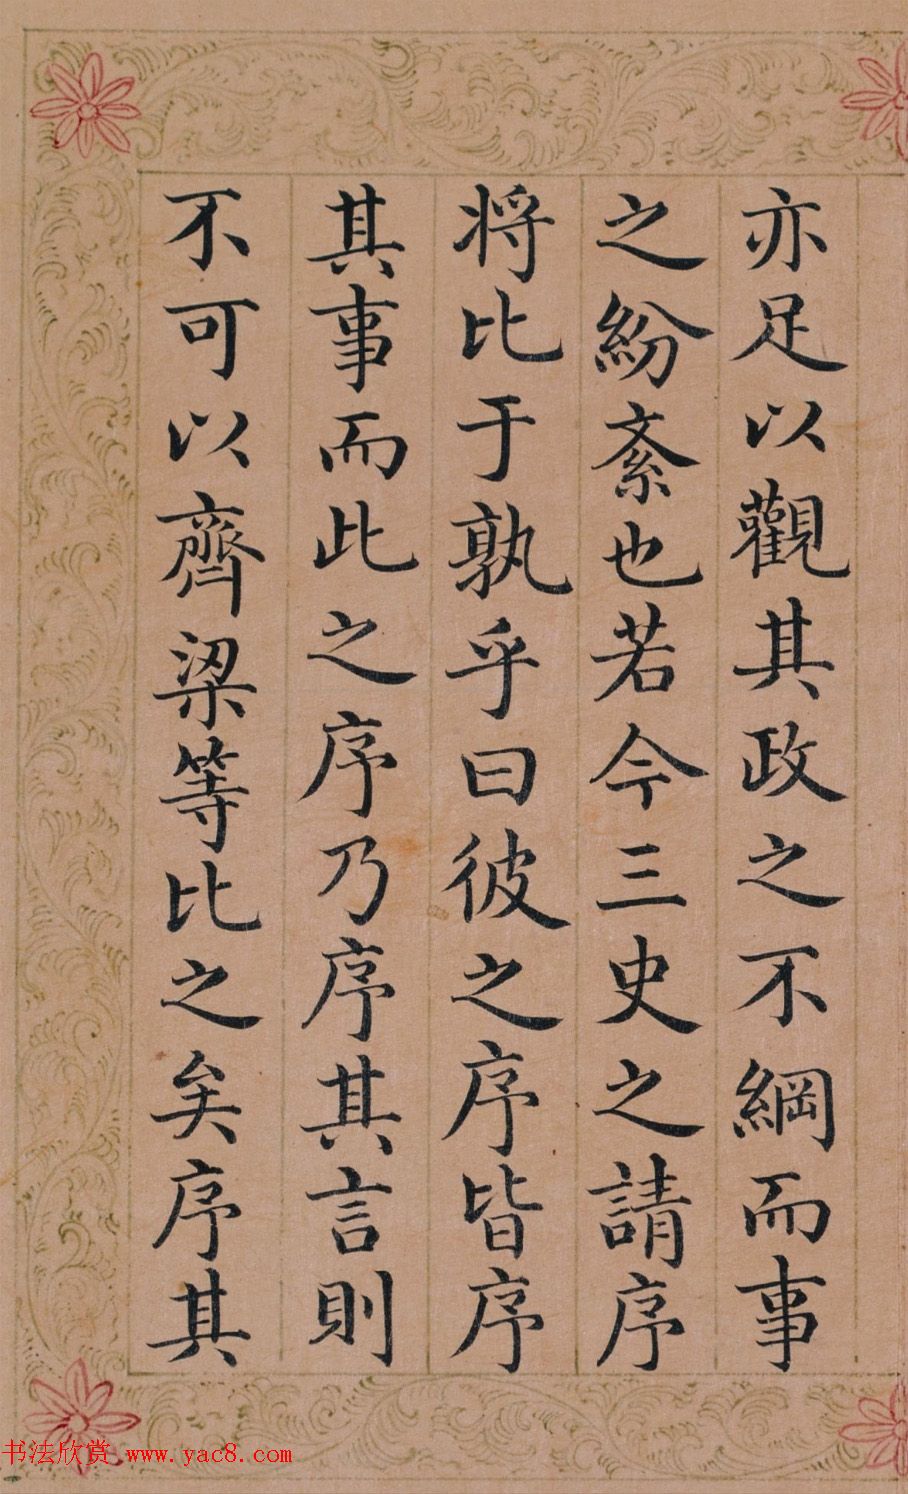 亦足以觀其政之不綱而事
之紛紊也若今三史之請序
將比于孰乎曰彼之序皆序
其事而此之序乃序其言則
不可以齊梁等比之矣序其
书法欣赏 www.yac8.com